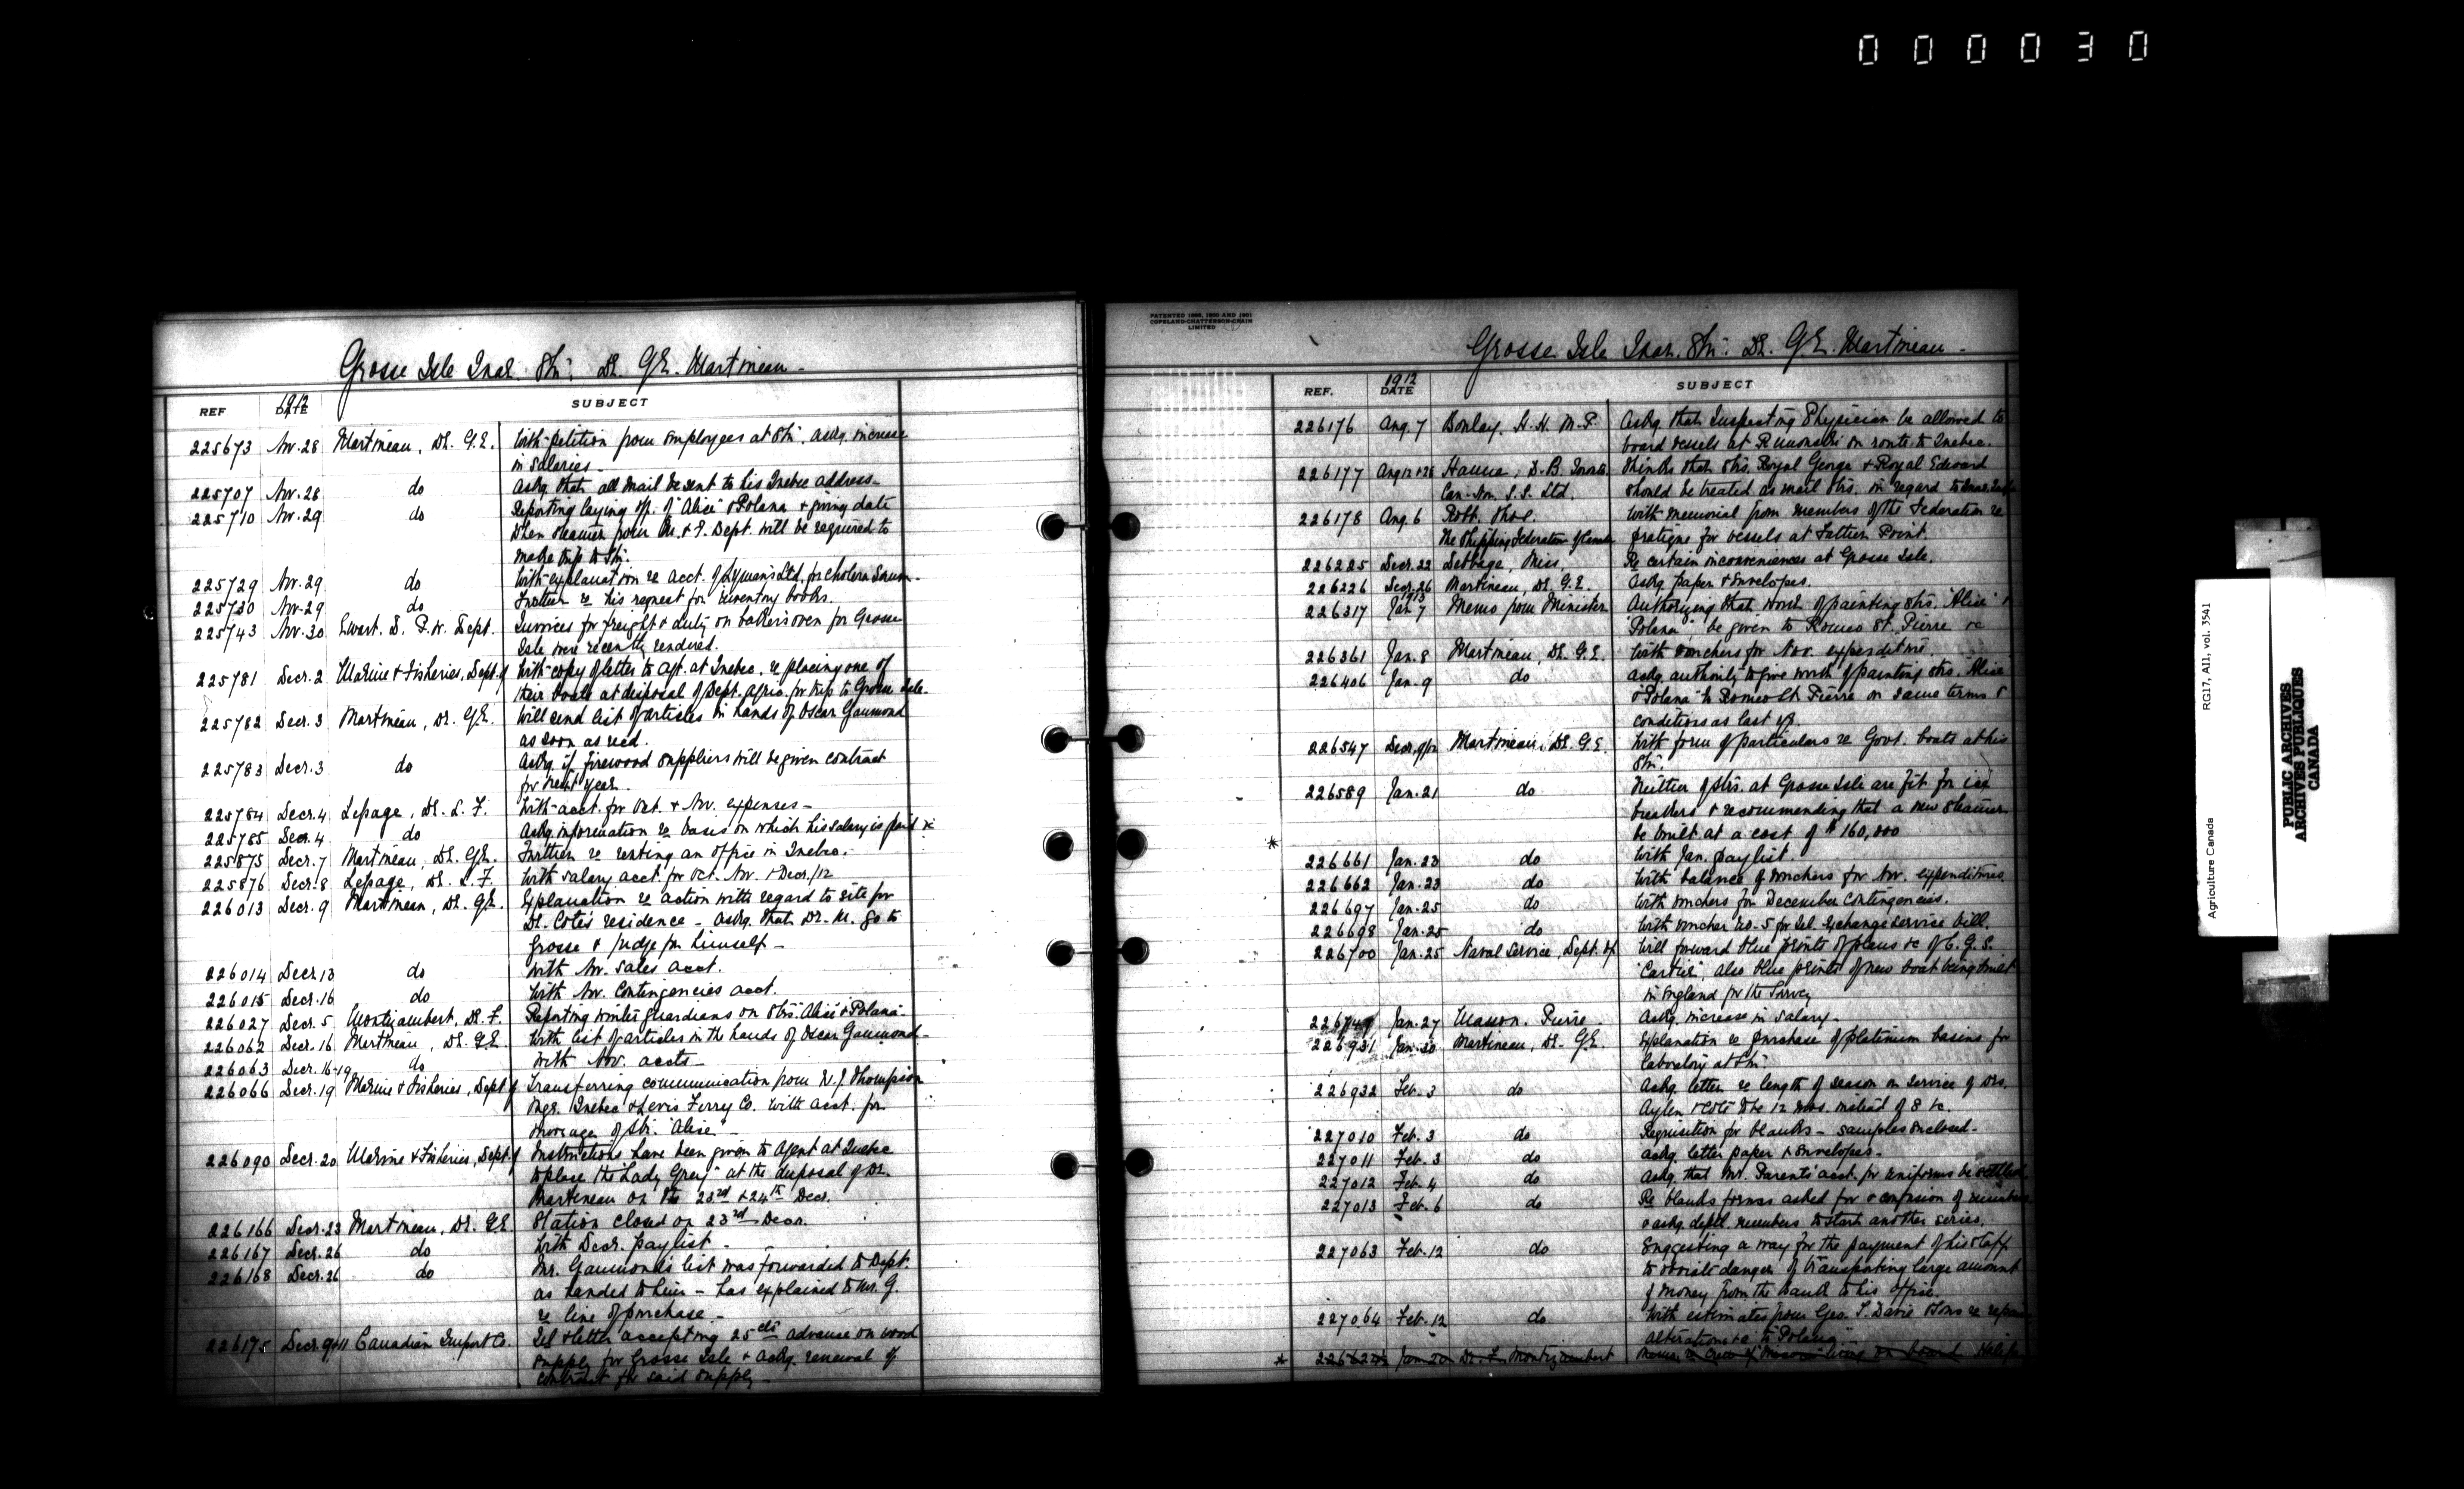 000030
Grosse Isle Quar. Stn. Dr. G.E. Martineau -
REF. 1912 DATE SUBJECT
225673 Nov. 28 Martineau, Dr. G.E. With petition from employees at Stn. askg. increase
in salaries -
225707 Nov. 28 do Askg. that all mail be sent to his Quebec address -
225710 Nov. 29 do Reporting laying up of "Alice" & Polana & giving date
when steamer from M. & F. Dept. will be required to
make trip to Stn.
225729 Nov. 29 do With explanation re acct. of Lyman's Ltd. for cholera serum -
225730 Nov. 29 do Further re his request for inventory books.
225743 Nov. 30 Ewart. D. P.W. Dept. Invoices for freight & duty on baker's oven for Grosse
Isle were recently rendered.
225781 Decr. 2 Marine & Fisheries, Dept. of With copy of letter to agt. at Quebec, re placing one of
their boats at disposal of Dept. Agric. for trip to Grosse Isle -
225782 Decr. 3 Martineau, Dr. G.E. Will send list of articles in hands of Oscar Gaumond
as soon as recd.
225783 Decr. 3 do Askg. if firewood suppliers will be given contract
for next year -
225784 Decr. 4 Lepage, Dr. L. F. With acct. for Oct. & Nov. expenses -
225785 Decr. 4 do Askg. information re basis on which his salary is paid &c
225875 Decr. 7 Martineau, Dr. G.E. Further re renting an office in Quebec.
225876 Decr. 8 Lepage, Dr. L. F. With salary acct. for Oct. Nov. & Decr./12
226013 Decr. 9 Martineau, Dr. G.E. Explanation re action with regard to site for
Dr. Cote's residence - Askg. that Dr. M. go to
Grosse & judge for himself -
226014 Decr. 13 do With Nov. sales acct.
226015 Decr. 16 do With Nov. Contingencies acct.
226027 Decr. 5 Montizambert, Dr. F. Reporting winter guardians on Strs. Alice & Polana -
226062 Decr. 16 Martineau, Dr. G.E. With list of articles in the hands of Oscar Gaumond -
226063 Decr. 16-19 do With Nov. accts -
226066 Decr. 19 Marine & Fisheries, Dept. of Transferring communication from W.J. Thompson
Mgr. Quebec & Levis Ferry Co. with acct. for
moorage of Str. "Alice" -
226090 Decr. 20 Marine & Fisheries, Dept. of Instructions have been given to agent at Quebec
to place the "Lady Grey" at the disposal of Dr.
Martineau on the 23rd & 24th Decr.
226166 Decr. 23 Martineau, Dr. G.E. Station closed on 23rd Decr.
226167 Decr. 26 do With Decr. paylist -
226168 Decr. 26 do Mr. Gaumond's list was forwarded to Dept.
as handed to him - has explained to Mr. G.
re line of purchase -
226175 Decr. 9&11 Canadian Import Co. Tel & letter accepting 25 cts advance on wood
supply for Grosse Isle & askg. renewal of
contract for said supply -
PATENTED 1898, 1900 AND 1901
COPELAND-CHATTERSON-CRAIN
LIMITED
Grosse Isle Quar. Stn. Dr. G.E. Martineau -
REF. 1912 DATE SUBJECT
226176 Aug. 7 Boulay, H. H. M.P. Askg. that Inspecting Physician be allowed to
board vessels at Rimouski on route to Quebec.
226177 Aug 12 & 28 Hanna, D. B. Thinks that Strs. Royal George & Royal Edward
Can. Nor. S.S. Ltd. should be treated as mail Strs. in regard to
226178 Aug. 6 Robb. Thos. With memorial from members of the Federation re
The Shipping Federation of Canada pratique for vessels at Father Point.
226225 Decr. 22 Miss, Re certain inconveniences at Grosse Isle.
226226 Decr. 26 Martineau, Dr. G.E. Askg. paper & envelopes.
226317 1913 Jan. 7 Memo from Minister Authorizing that work of painting Strs. "Alice" &
"Polana", be given to Romeo St. Pierre &c
226361 Jan. 8 Martineau, Dr. G.E. With vouchers for Nov. expenditure.
226406 Jan. 9 do Askg. authority to give work of painting Strs. "Alice"
& "Polana" to Romeo St. Pierre on same terms &
conditions as last yr.
226547 Decr. 9/12 Martineau, Dr. G.E. With form of particulars re Govt. boats at his
Stn.
226589 Jan. 21 do Neither of Strs. at Grosse Isle are fit for ice
breakers & recommending that a new steamer
* be built at a cost of $160,000
226661 Jan. 23 do With Jan. paylist.
226662 Jan. 23 do With balance of vouchers for Nov. expenditures.
226697 Jan. 25 do With vouchers for December contingencies.
226698 Jan. 25 do With voucher No. 5 for Tel. Exchange service bill.
226700 Jan. 25 Naval Service, Dept. of Will forward blue prints of plans &c of C.G.S.
"Cartier", also blue prints of new boat being built
in England for the Survey
Jan. 27 Masson. Pierre Askg. increase in salary -
226931 Jan. 30 Martineau, Dr. G.E. Explanation re purchase of platinum basins for
laboratory at Stn.
226932 Feb. 3 do Askg. letter re length of season on service of Drs.
Aylen & Cote to be 12 mos. instead of 8 &c.
227010 Feb. 3 do Requisition for blanks - samples enclosed -
227011 Feb. 3 do Askg. letter paper & envelopes -
227012 Feb. 4 do Askg. that Mr. Parent's acct. for uniforms be settled
227013 Feb. 6 do Re blank forms asked for & confusion of numbers
& askg. deptl. numbers to start another series.
227063 Feb. 12 do Suggesting a way for the payment of his staff
to obviate danger of transporting large amount
of money from the bank to his office.
227064 Feb. 12 do With estimates from Geo. T. Davie & Sons re repairs
alterations &c to "Polana"
* Jan 20 Dr. F. Montizambert on board
Agriculture Canada RG17, AII, vol. 3541
PUBLIC ARCHIVES
ARCHIVES PUBLIQUES
CANADA